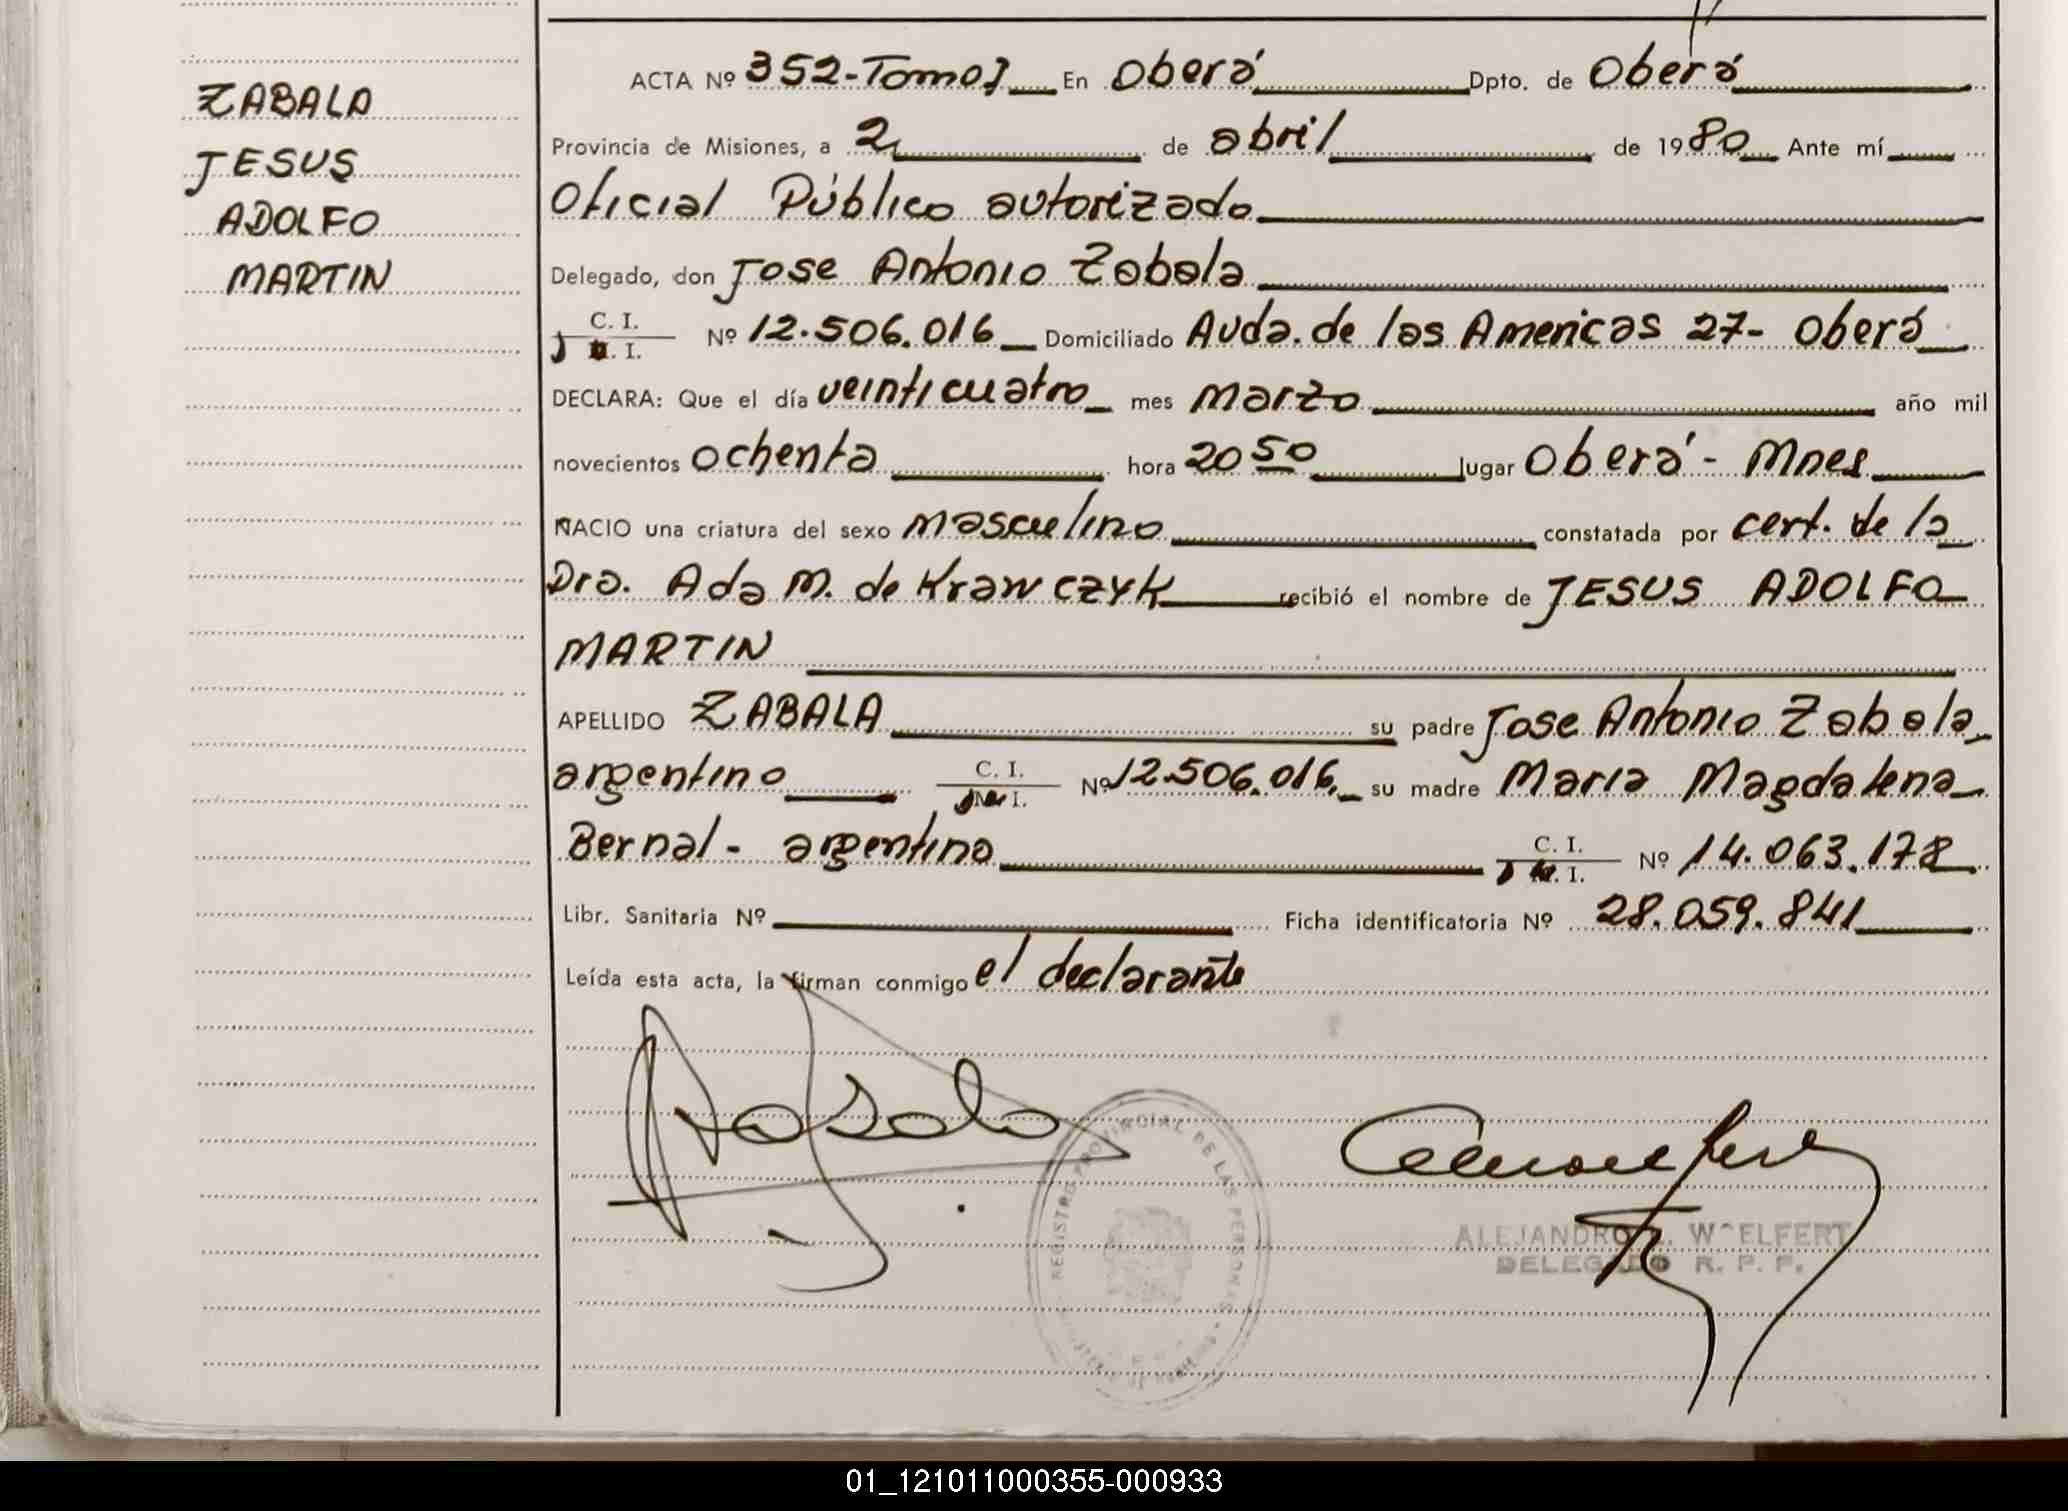 ZABALA
JESUS
ADOLFO
MARTIN
ACTA Nº 352-Tomo I En Oberá Dpto. de Oberá
Provincia de Misiones, a 2 de abril de 1980 Ante mí
Oficial Público autorizado
Delegado, don Jose Antonio Zabala
C. I.
I. Nº 12.506.016 Domiciliado Avda. de las Americas 27- Oberá
DECLARA: Que el día veinticuatro mes marzo año mil
novecientos ochenta hora 20 50 lugar Oberá - Mnes
NACIO una criatura del sexo masculino constatada por cert. de la
Dra. Ada M. de Krawczyk recibió el nombre de JESUS ADOLFO
MARTIN
APELLIDO ZABALA su padre Jose Antonio Zabala
argentino C. I. Nº 12.506.016 su madre Maria Magdalena
Bernal - argentina C. I. Nº 14.063.178
Libr. Sanitaria Nº Ficha identificatoria Nº 28.059.841
Leída esta acta, la firman conmigo el declarante
REGISTRO PROVINCIAL DE LAS PERSONAS
ALEJANDRO WOELFERT
DELEGADO R. P. P.
01_121011000355-000933